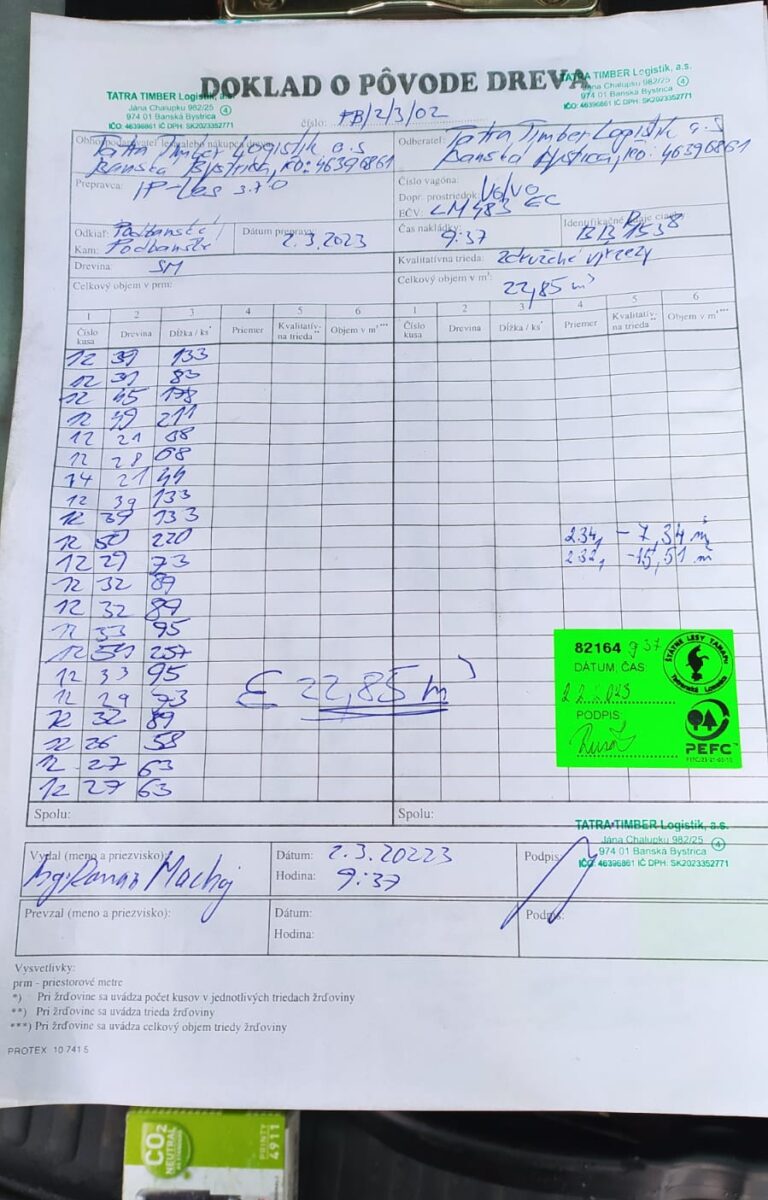 DOKLAD O PÔVODE DREVA
TATRA TIMBER Logistik, a.s.
Jána Chalupku 982/25
974 01 Banská Bystrica
IČO: 46396861 IČ DPH: SK2023352771
4
TATRA TIMBER Logistik, a.s.
Jána Chalupku 982/25
974 01 Banská Bystrica
IČO: 46396861 IČ DPH: SK2023352771
4
číslo: PB/2/3/02
Tatra Timber Logistik a.s
Banská Bystrica, IČO: 46396861
Odberateľ: Tatra Timber Logistik a.s
Banská Bystrica, IČO: 46396861
Prepravca: IP-Les s.r.o
Číslo vagóna:
Dopr. prostriedok: Volvo
EČV: LM 483 EC
Odkiaľ: Podbanské
Kam: Podbanské
Dátum prepravy: 2.3.2023
Čas nakládky: 9:37
Identifikačné
Drevina SM
Kvalitatívna trieda: združené výrezy
Celkový objem v prm:
Celkový objem v m³: 22,85 m³
1 2 3 4 5 6 1 2 3 4 5 6
Číslo kusa Drevina Dĺžka / ks* Priemer Kvalitatív-na trieda** Objem v m³*** Číslo kusa Drevina Dĺžka / ks* Priemer Kvalitatív-na trieda** Objem v m³***
12 39 133
12 31 83
12 45 178
12 49 211
12 21
12 28 68
14 21 44
12 39 133
12 39 133
12 50 220
12 29 73
12 32 89
12 32 89
12 33 95
12 54 257
12 33 95
12 29 73
12 32 89
12 26 58
12 27 63
12 27 63
234, - 7,34 m³
232, -15,51 m³
Σ 22,85 m³
82164 9 37
DÁTUM, ČAS:
PODPIS:
ŠTÁTNE LESY TANAPU
Tatranská Lomnica
PEFC™
Spolu:
Spolu:
TATRA TIMBER Logistik, a.s.
Jána Chalupku 982/25
974 01 Banská Bystrica
IČO: 46396861 IČ DPH: SK2023352771
4
Vydal (meno a priezvisko): Ing. Roman Machaj
Dátum: 2.3.20223
Hodina: 9:37
Podpis:
Prevzal (meno a priezvisko):
Dátum:
Hodina:
Podpis:
Vysvetlivky:
prm - priestorové metre
*) Pri žrďovine sa uvádza počet kusov v jednotlivých triedach žrďoviny
**) Pri žrďovine sa uvádza trieda žrďoviny
***) Pri žrďovine sa uvádza celkový objem triedy žrďoviny
PROTEX 10 741 5
CO2
NEUTRAL
PRINTY
4911